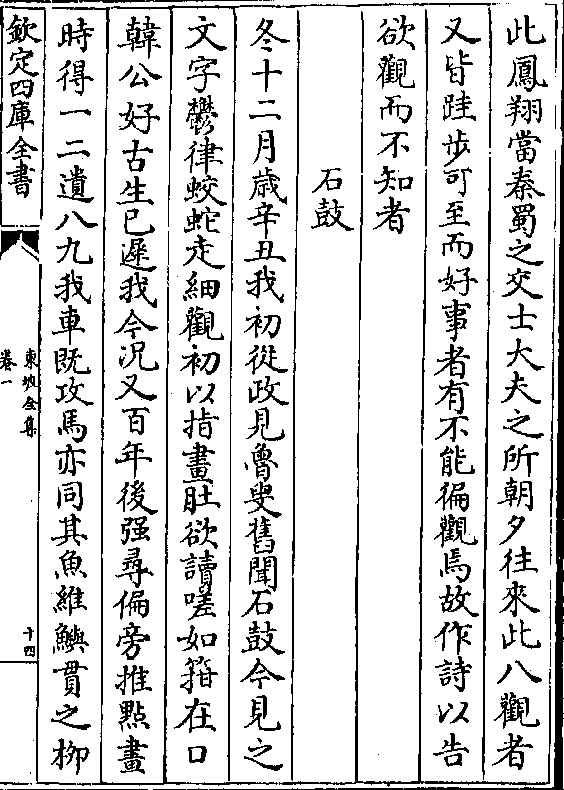 此鳳翔當秦蜀之交士大夫之所朝夕往來此八觀者
又皆跬步可至而好事者有不能徧觀焉故作詩以告
欲觀而不知者
石鼓
冬十二月歲辛丑我初從政見魯叟舊聞石鼓今見之
文字鬱律蛟蛇走細觀初以指畫肚欲讀嗟如箝在口
韓公好古生已遲我今况又百年後强尋偏旁推點畫
時得一二遺八九我車既攻馬亦同其魚維鱮貫之柳
欽定四庫全書
東坡全集
卷一
十四